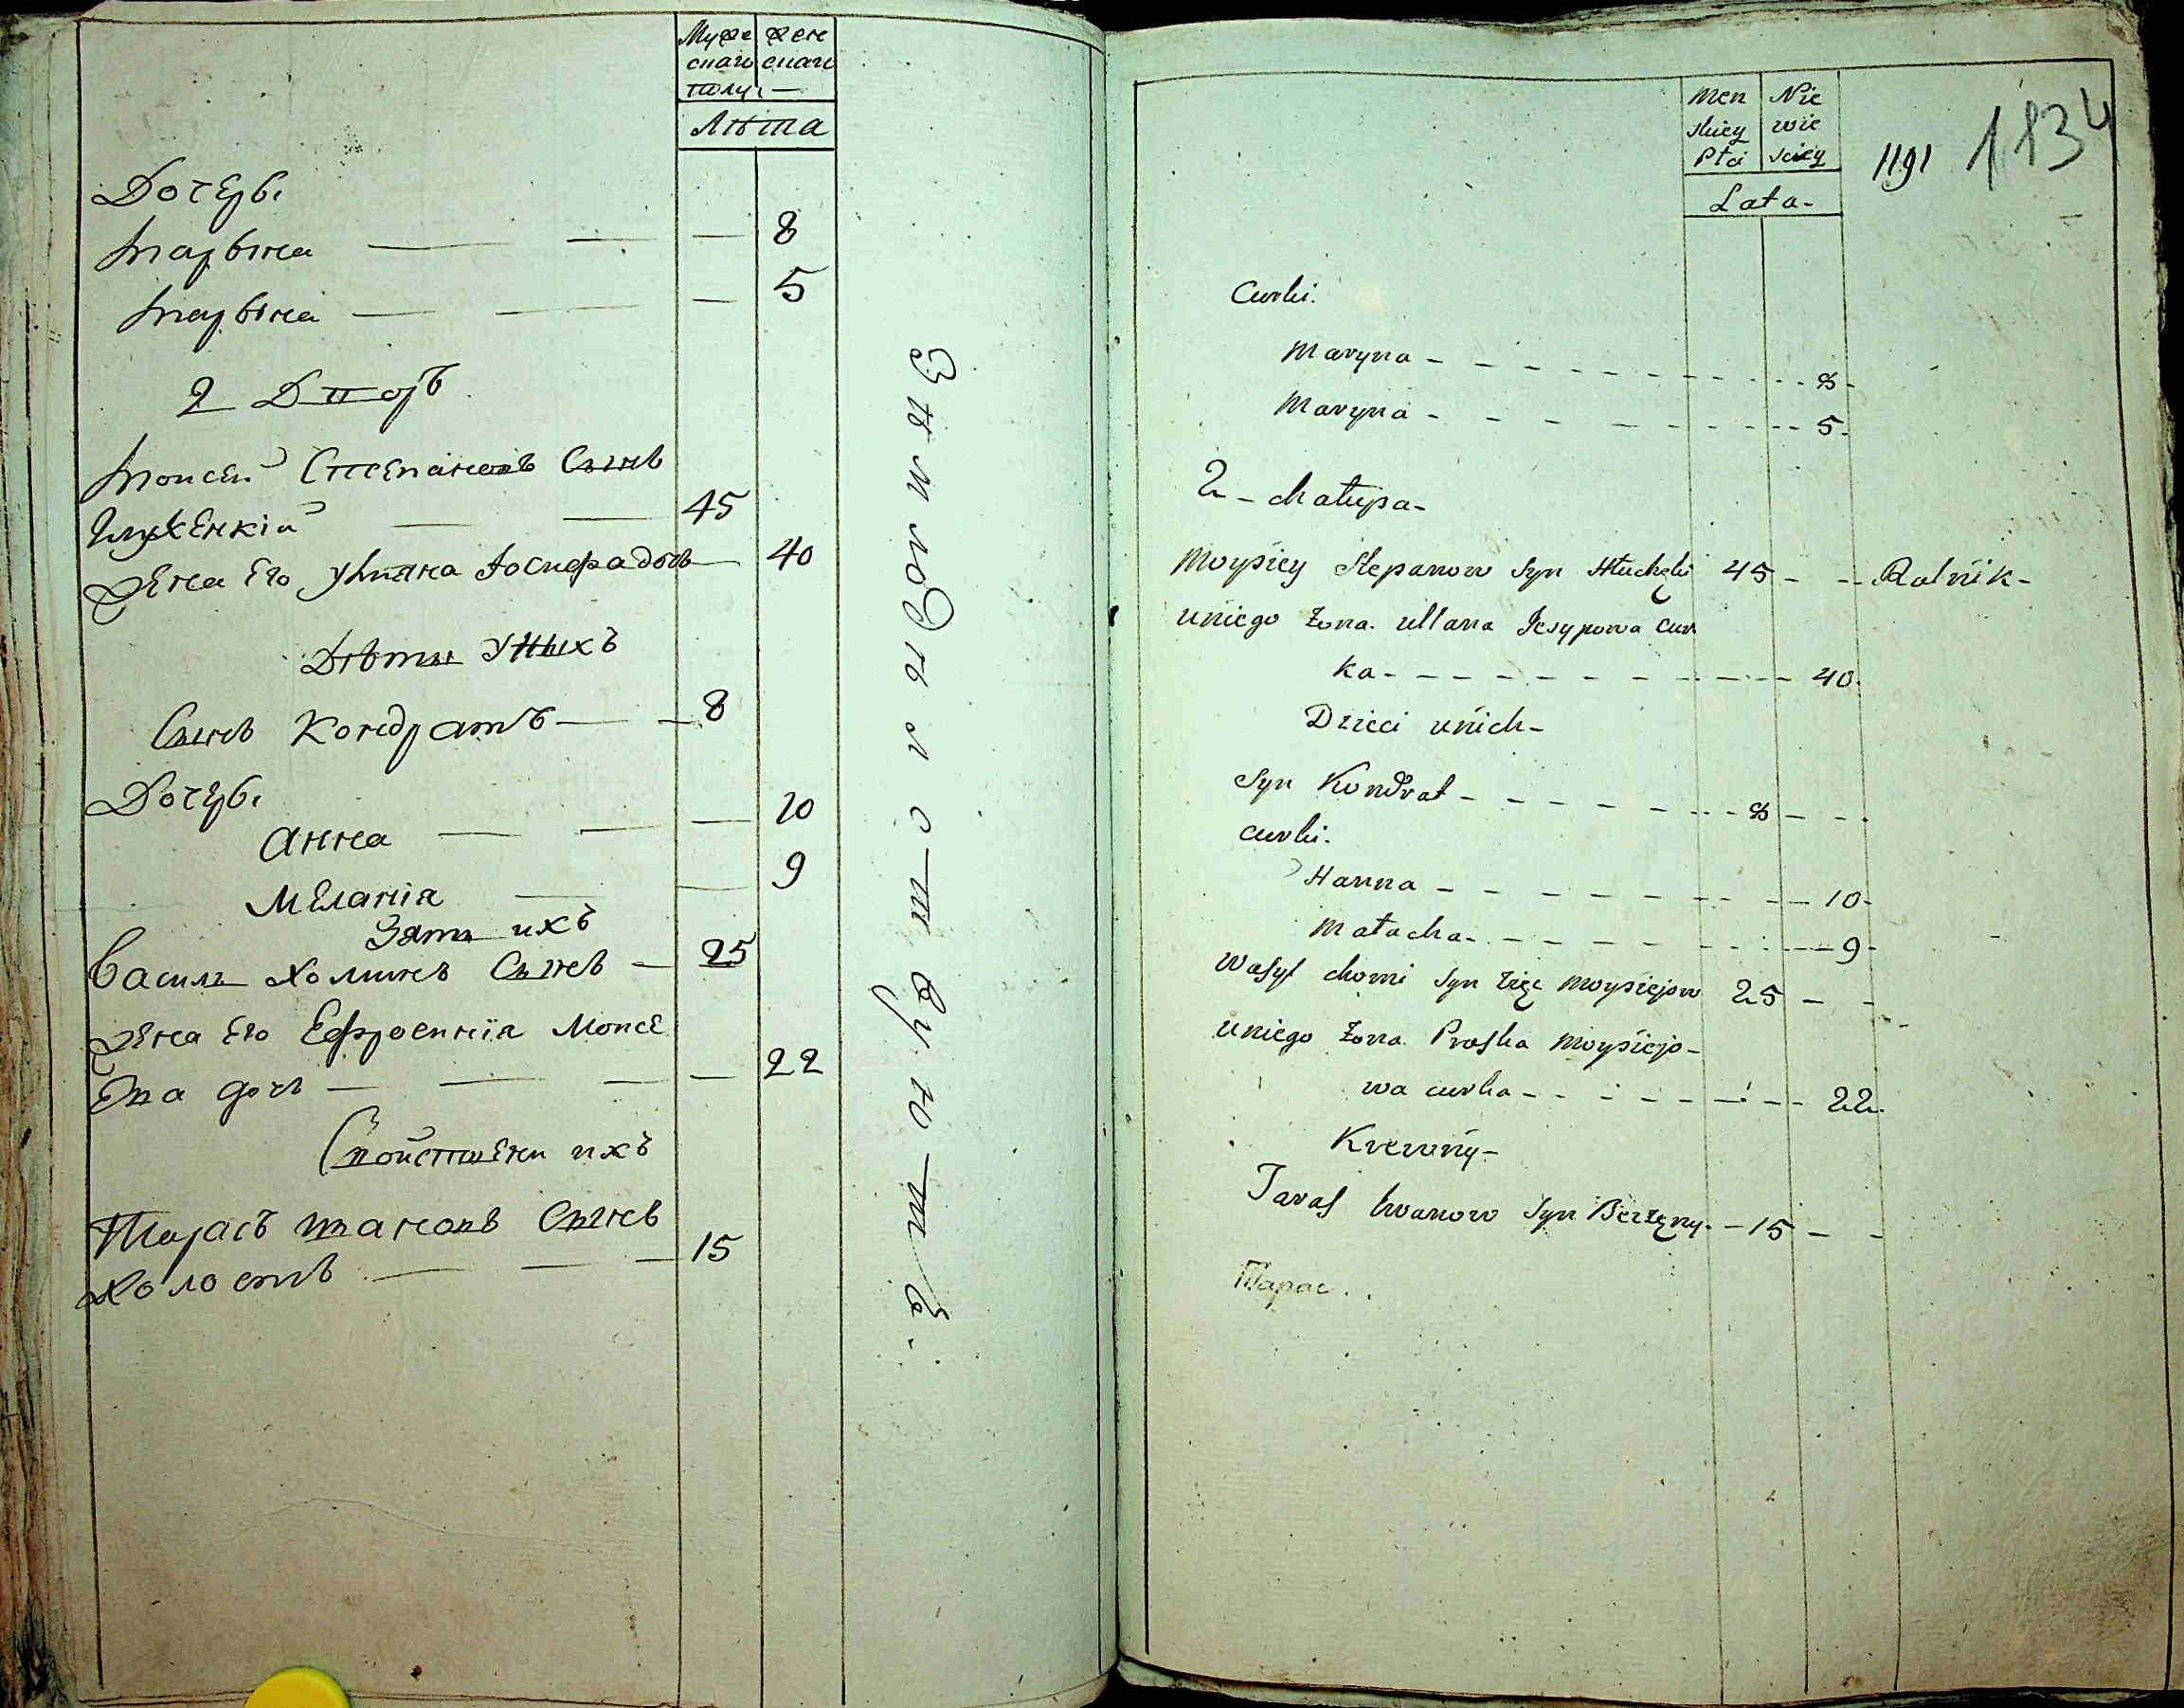 Муже жене
скаго скаго
полу —
Лѣта
Дочери
Марына — — — 8
Марына — — — 5
2 Дворъ
Моисей Степановъ Сынъ
Глухенкій — — 45
Жена Его Улияна Іосифа дочь — 40
Дѣти У Ныхъ
Сынъ Кондратъ — — 8
Дочери
Анна — — — 10
Меланія — — 9
Зять ихъ
Василь Хоминъ Сынъ — 25
Жена Его Ефросинія Моисе
ева дочь — — — — 22
Свойственни ихъ
Тарасъ Ивановъ Сынъ
Холостъ — — — 15
Земледѣлствуютъ.
Men Nie
skiey wie
Płci sciey
Lata-
1191 1834
Curki.
Maryna - - - - - - - - 8-
Maryna - - - - - - - - 5.
2 - chałupa-
Moysiey Stepanow Syn Hłuchęki 45 - - Rolnik-
uniego Żona. Ullana Jesypowa Cur
ka - - - - - - - - - 40.
Dzieci unich-
Syn Kondrat - - - - - - - 8 - -
curki.
Hanna - - - - - - - - 10-
Małacha - - - - - - - - 9-
Wasyl chomi Syn Zięc Moysiejow 25 - -
uniego Żona. Proska Moysiejo-
wa curka - - - - - - - - 22.
Krewny-
Taras Iwanow Syn Bezżęny. - 15 - -
Тарас..